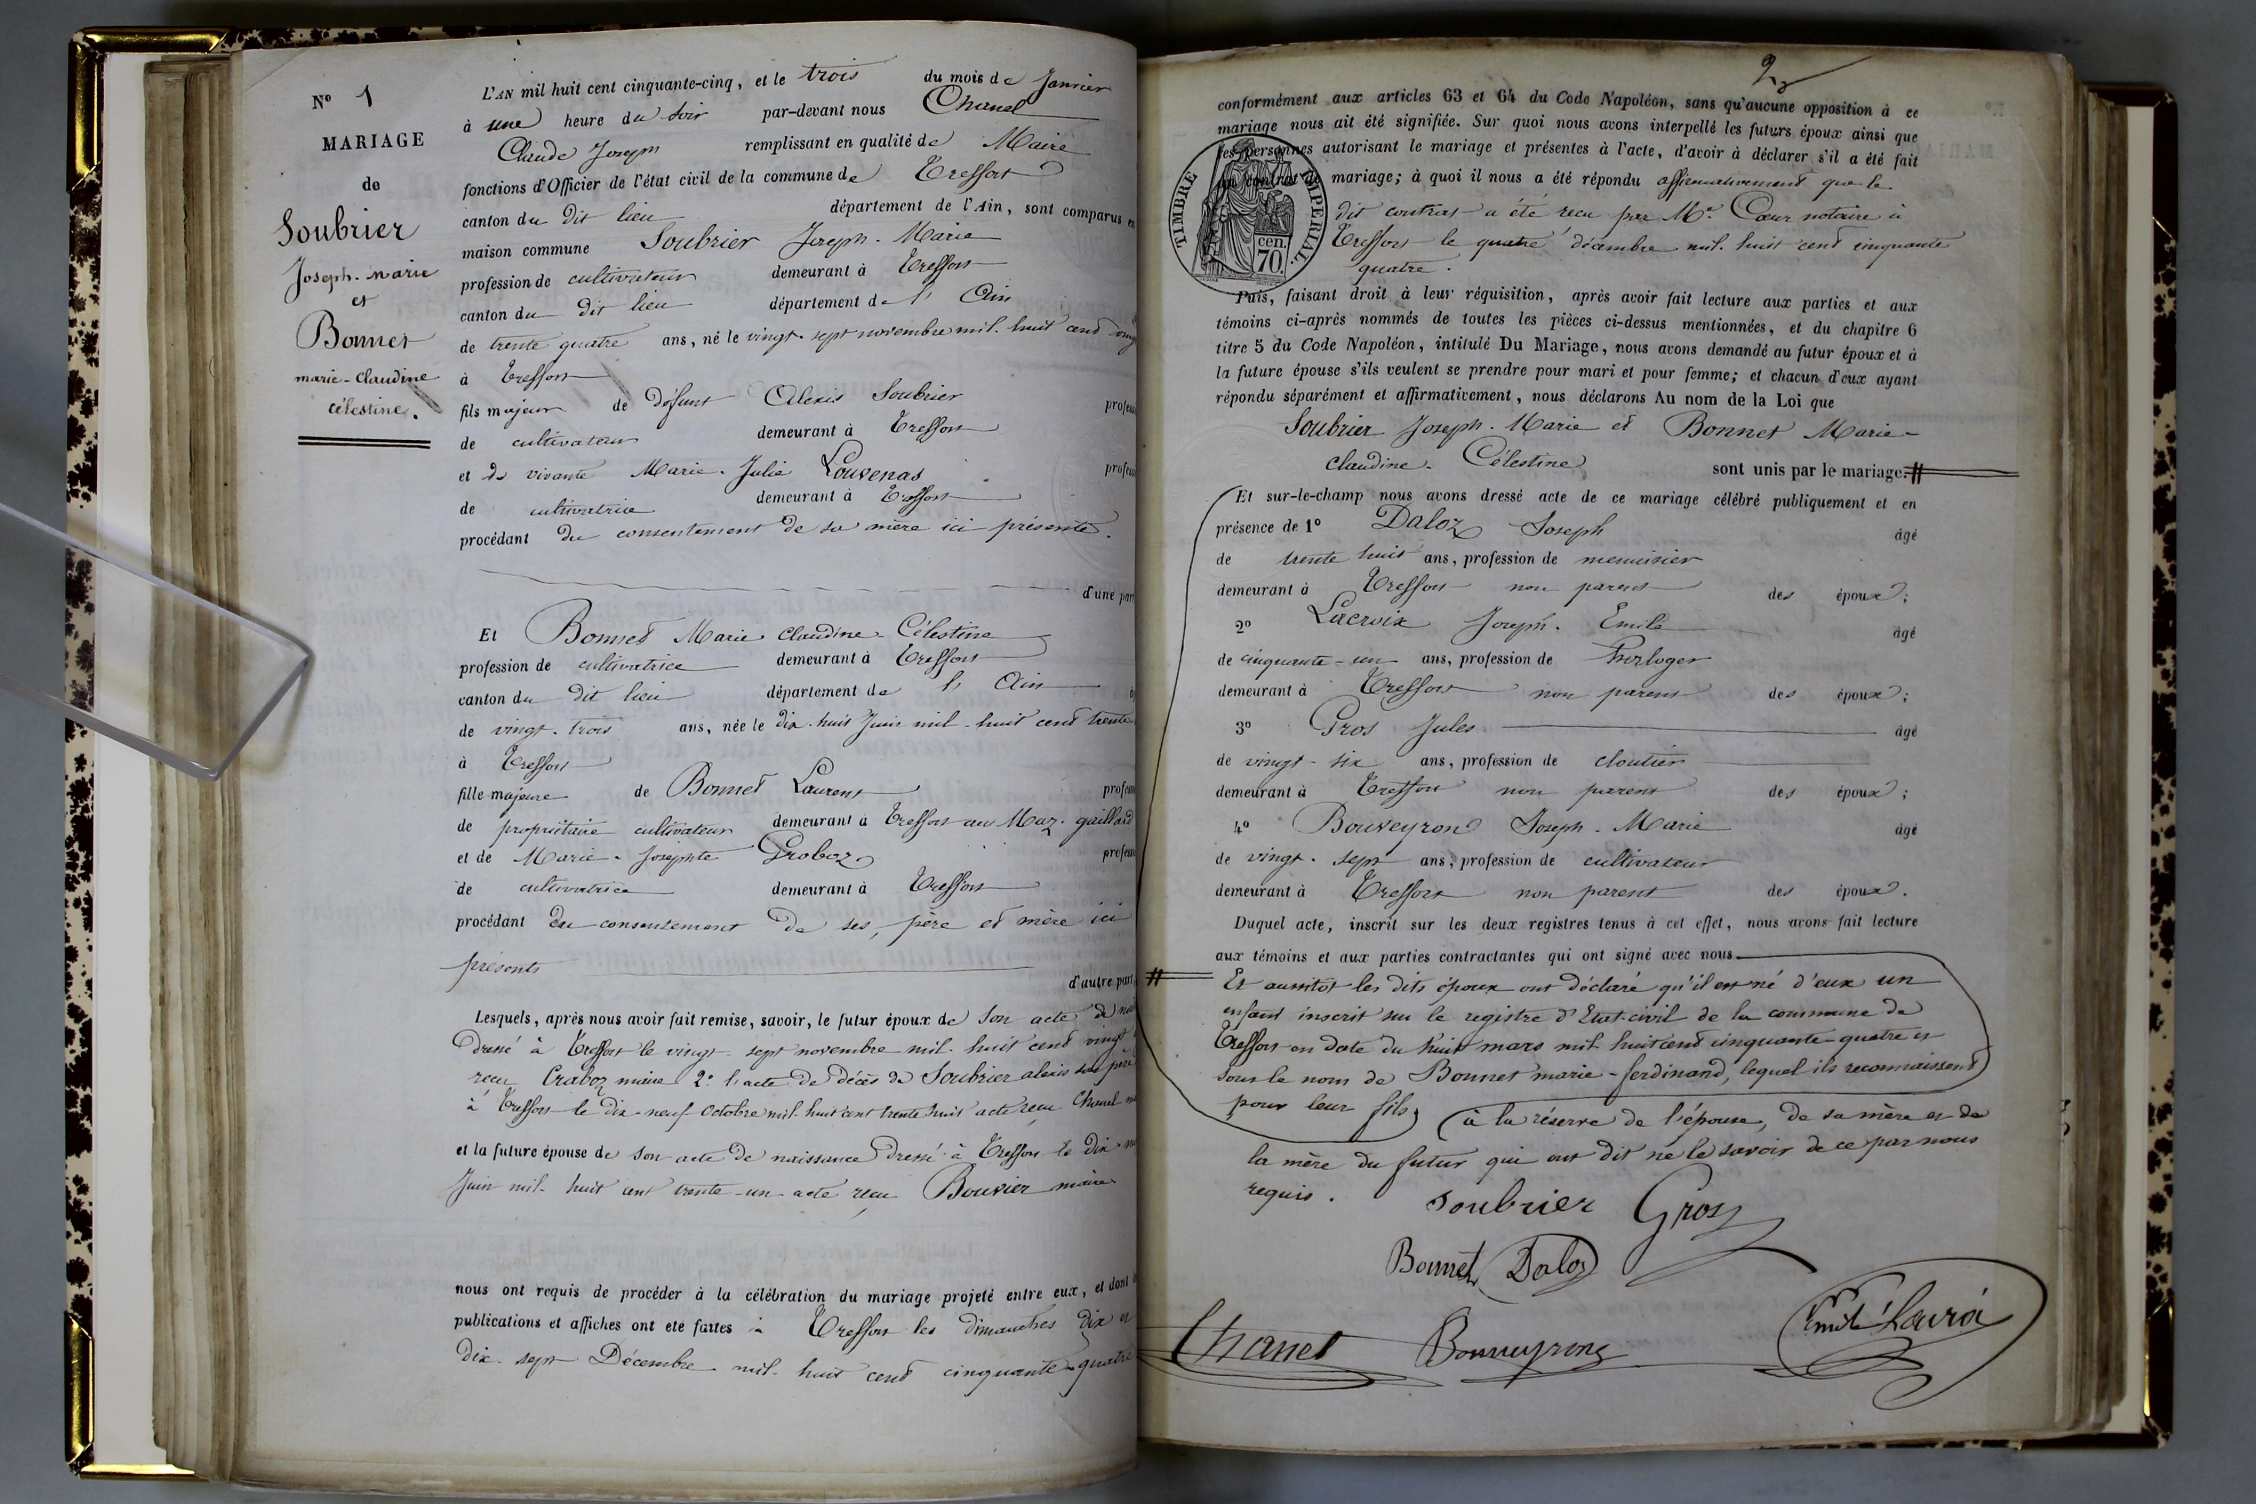 N° 1
MARIAGE
de
Soubrier
Joseph-marie
et
Bonnet
marie-claudine
célestine.
L'AN mil huit cent cinquante-cinq, et le trois du mois de Janvier
à une heure du soir par-devant nous Chanel
Claude Joseph remplissant en qualité de Maire
fonctions d'Officier de l'état civil de la commune de Treffort
canton du dit lieu département de l'Ain, sont comparus en
maison commune Soubrier Joseph-Marie
profession de cultivateur demeurant à Treffort
canton du dit lieu département de l' Ain
de trente quatre ans, né le vingt-sept novembre mil-huit cent vingt
à Treffort
fils majeur de défunt Alexis Soubrier profess
de cultivateur demeurant à Treffort
et de vivante Marie-Julie Louvenas profess
de cultivatrice demeurant à Treffort
procédant du consentement de sa mère ici présente.
d'une part
Et Bonnet Marie claudine-Célestine
profession de cultivatrice demeurant à Treffort
canton du dit lieu département de l' Ain
de vingt-trois ans, née le dix-huit Juin mil-huit cent trente
à Treffort
fille majeure de Bonnet Laurent profess
de propriétaire cultivateur demeurant à Treffort au Maz-gaillard
et de Marie-Josephte Groboz profess
de cultivatrice demeurant à Treffort
procédant du consentement de ses, père et mère ici
présents
d'autre part
Lesquels, après nous avoir fait remise, savoir, le futur époux de son acte de nais
dressé à Treffort le vingt-sept novembre mil-huit cent vingt
reçu Craboz maire 2° l'acte de décès de Soubrier alexis son père
à Treffort le dix-neuf Octobre mil-huit cent trente huit acte reçu Chanel
et la future épouse de son acte de naissance dressé à Treffort le dix
Juin mil-huit cent trente-un-acte reçu Bouvier maire
nous ont requis de procéder à la célébration du mariage projeté entre eux, et dont
publications et affiches ont été faites à Treffort les dimanches dix et
dix-sept Décembre mil-huit cent cinquante-quatre
2
conformément aux articles 63 et 64 du Code Napoléon, sans qu'aucune opposition à ce
mariage nous ait été signifiée. Sur quoi nous avons interpellé les futurs époux ainsi que
les personnes autorisant le mariage et présentes à l'acte, d'avoir à déclarer s'il a été fait
un contrat de mariage; à quoi il nous a été répondu affirmativement que le
dit contrat a été reçu par Me. Cœur notaire à
Treffort le quatre décembre mil-huit cent cinquante
quatre.
TIMBRE IMPERIAL.
cen.
70.
Puis, faisant droit à leur réquisition, après avoir fait lecture aux parties et aux
témoins ci-après nommés de toutes les pièces ci-dessus mentionnées, et du chapitre 6
titre 5 du Code Napoléon, intitulé Du Mariage, nous avons demandé au futur époux et à
la future épouse s'ils veulent se prendre pour mari et pour femme; et chacun d'eux ayant
répondu séparément et affirmativement, nous déclarons Au nom de la Loi que
Soubrier Joseph-Marie et Bonnet Marie-
claudine-Célestine sont unis par le mariage.#
Et sur-le-champ nous avons dressé acte de ce mariage célébré publiquement et en
présence de 1° Daloz Joseph âgé
de trente huit ans, profession de menuisier
demeurant à Treffort non parent des époux;
2° Lacroix Joseph-Emile âgé
de cinquante-un ans, profession de horloger
demeurant à Treffort non parent des époux;
3° Gros Jules âgé
de vingt-six ans, profession de cloutier
demeurant à Treffort non parent des époux;
4° Bouveyron Joseph-Marie âgé
de vingt-sept ans, profession de cultivateur
demeurant à Treffort non parent des époux.
Duquel acte, inscrit sur les deux registres tenus à cet effet, nous avons fait lecture
aux témoins et aux parties contractantes qui ont signé avec nous
# Et aussitôt les dits époux ont déclaré qu'il est né d'eux un
enfant inscrit sur le registre d'Etat-civil de la commune de
Treffort en date du huit mars mil-huit cent cinquante-quatre et
sous le nom de Bonnet marie-ferdinand, lequel ils reconnaissent
pour leur fils, (à la réserve de l'épouse, de sa mère et de
la mère du futur qui ont dit ne le savoir de ce par nous
requis.
Soubrier Gros
Bonnet Daloz
Chanel Bouveyron Emile Lacroix